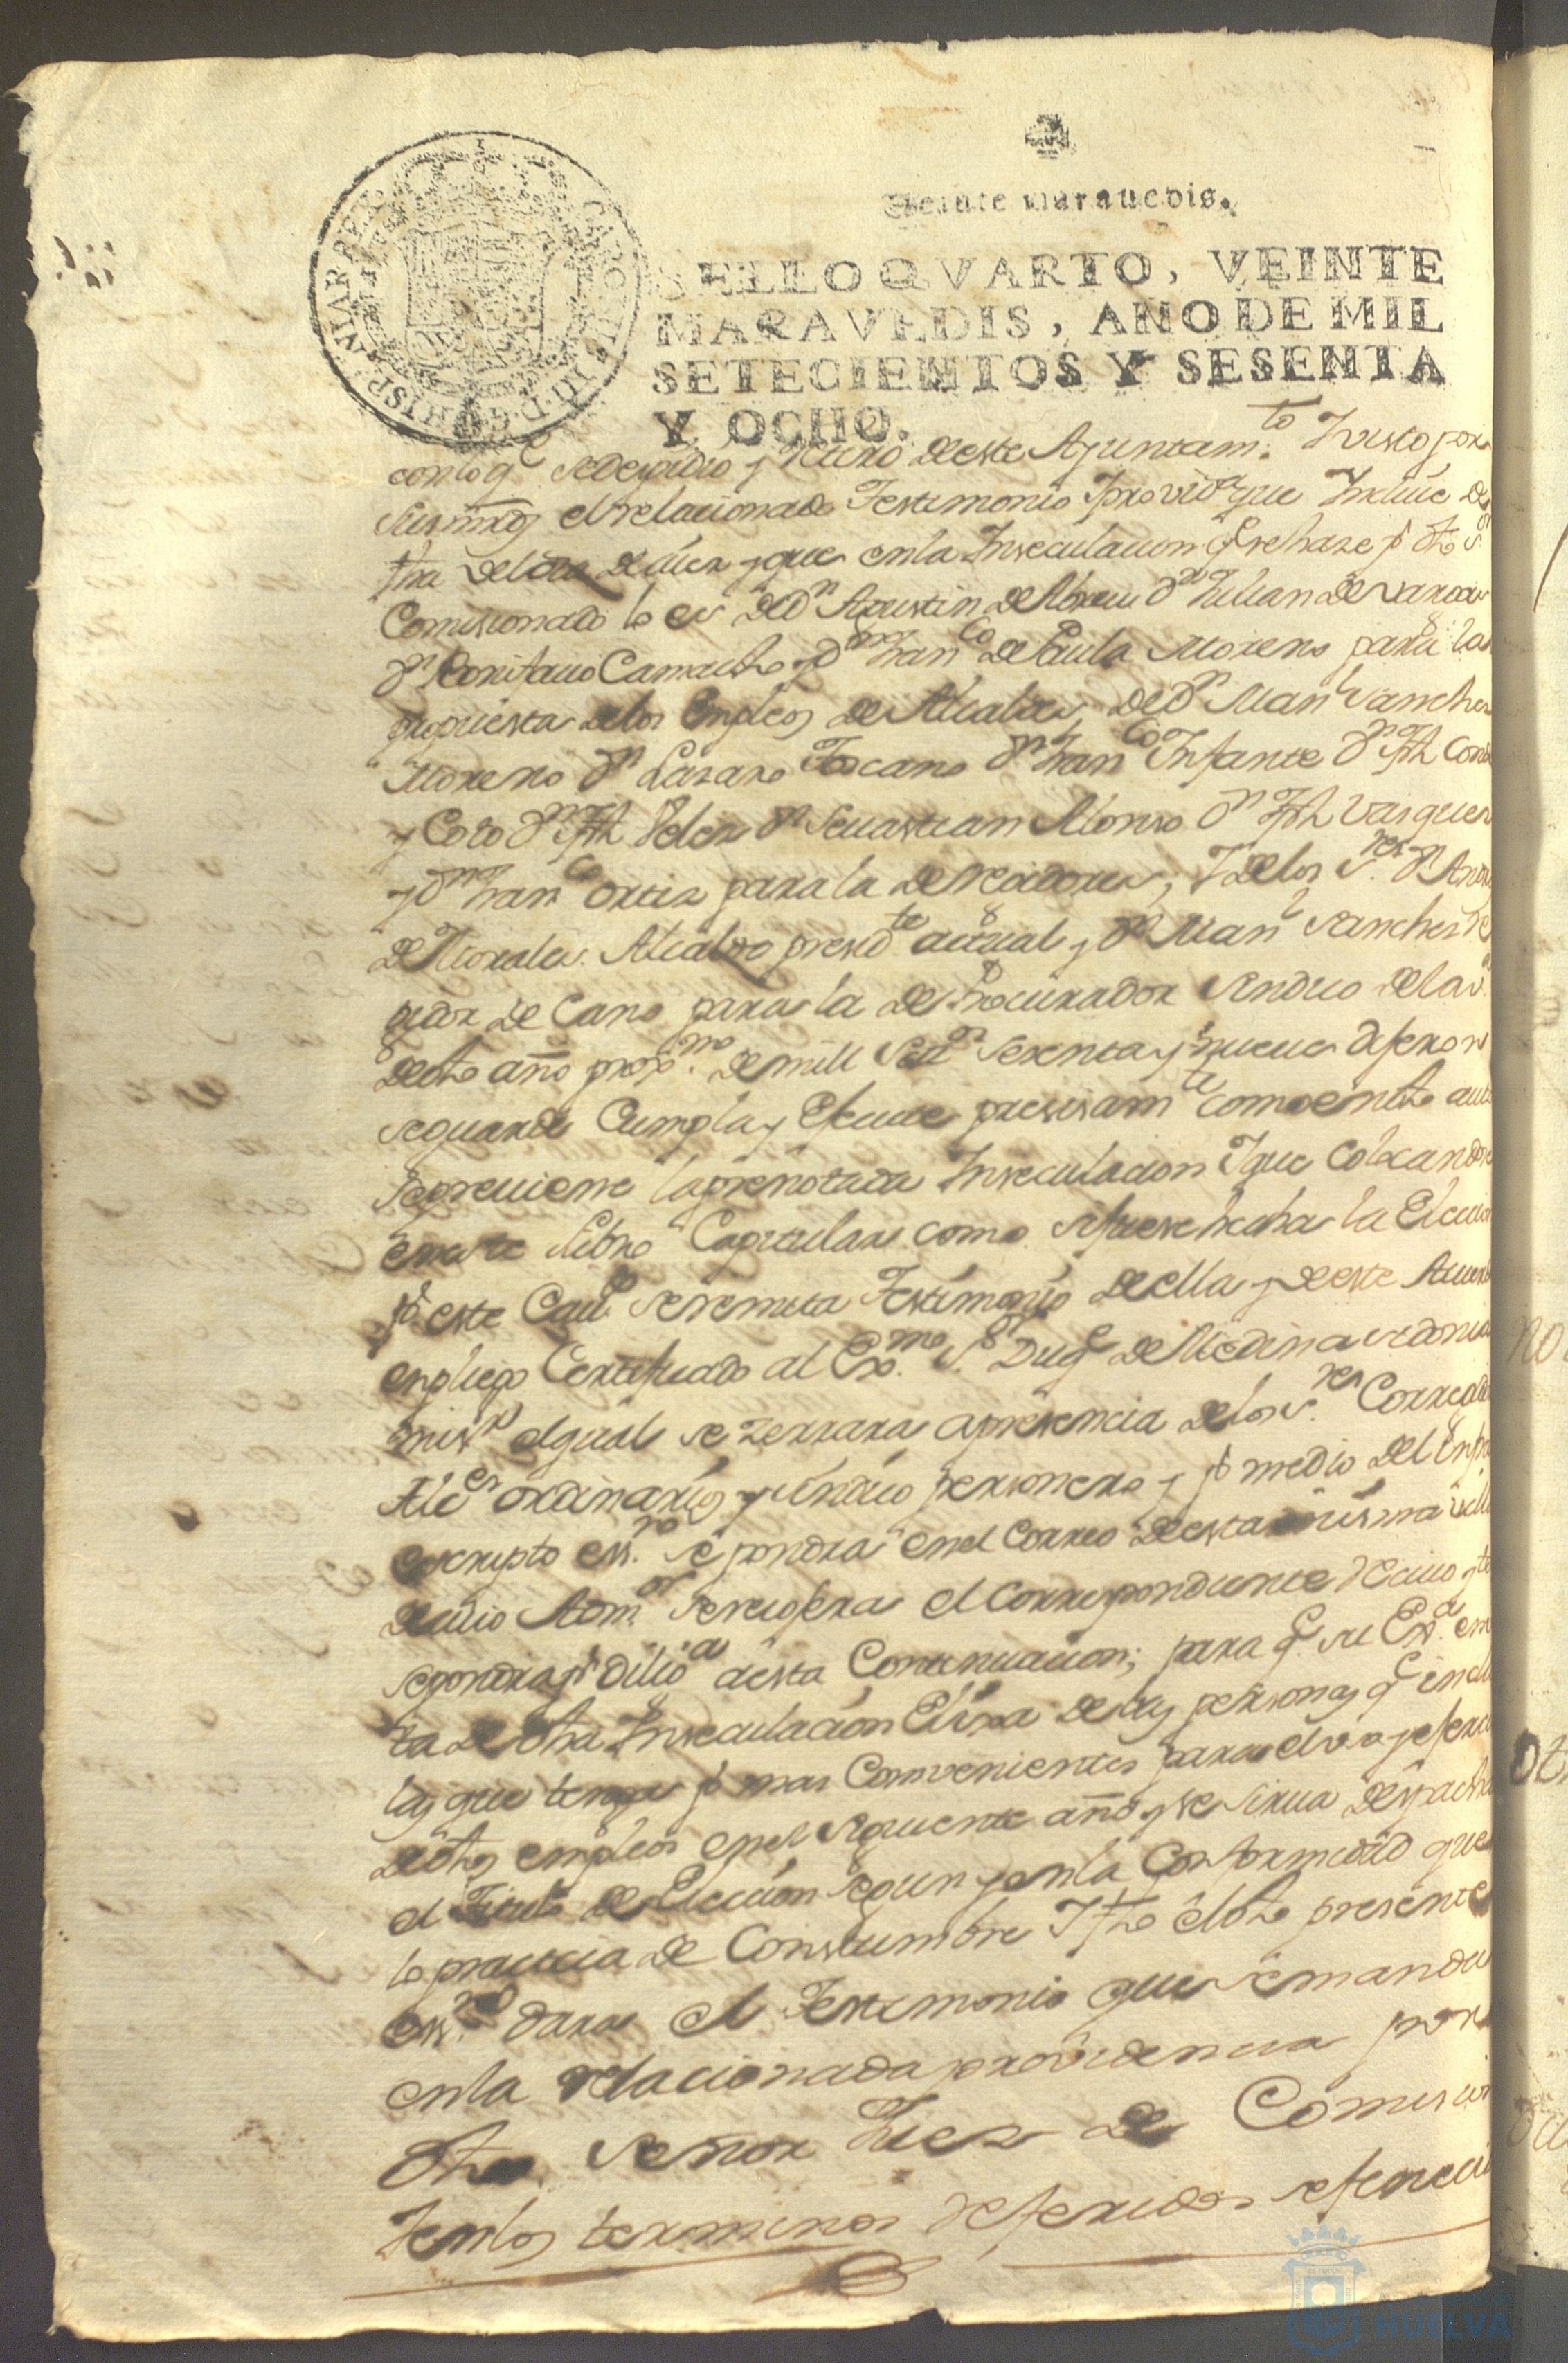 Veinte marauedis.
SELLO QVARTO, VEINTE
MARAVEDIS, AÑO DE MIL
SETECIENTOS Y SESENTA
Y OCHO.
CAROLUS III D. G. HISPANIAR REX
con lo qe se despidio y retiro de este Ayuntamto. Y visto por
sus mrds el relacionado Testimonio y provida que Incluie
fha de el dia de aier y que en la Inseculacion qe se haze pr dho Sor
Comisionado lo es de Dn Agustin de Dn Julian de
Dn Bonifacio Camacho y Dn Franco de Paula Moreno para la
propuesta de los Empleos de Alcaldes, de Dn Manl Sanchez
Moreno Dn Lazaro Toscano Dn Franco Infante Dn Jph
y Coro Dn Jph Velez Dn Sevastian Alonso Dn Jph Vasquez
y Dn Franco Ortiz para la de Regidores, Y de los Sres Dn
de Morales Alcalde presidte actual y Dn Manl Sanchez Re
gidor de Cano para la de Procurador Sindico de la
de dho año proxmo de mill setos sesenta y nueve dijeron
se guarde Cumpla y Ejecute presisamte como en dho auto
se previene la prenotada Inseculacion Y que colocandose
en este Libro Capitular como si fuese hecha la Eleccion
pr este Cavdo se remita Testimonio de ella y de este Acuerdo
en pliego Certificado al Exmo Sr Duqe de Medina sidonia
mi sr el qual se zerrara a presencia de los Sres Corregidor
Alces ordinarios y sindico personero y pr medio del Infra
escripto essno se pondra en el Correo de esta misma villa
de cuio Admor se recojera el correspondiente recivo qe
se pondra pr Dilia a esta Continuacion; para qe su Exa en
ta de dha Inseculacion Elixa de las personas qe inclu
las que tenga pr mas Convenientes para el uso y exerci
de dhos empleos en el siguiente año y se sirva despacha
el Titulo de Eleccion segun y en la Conformidad que
lo practica de Constumbre Y fho el dho presente
essno dara el Testimonio que se manda
en la relacionada providencia por
dho Señor Juez de Comision
Y en los terminos referidos se fenecio
HUELVA